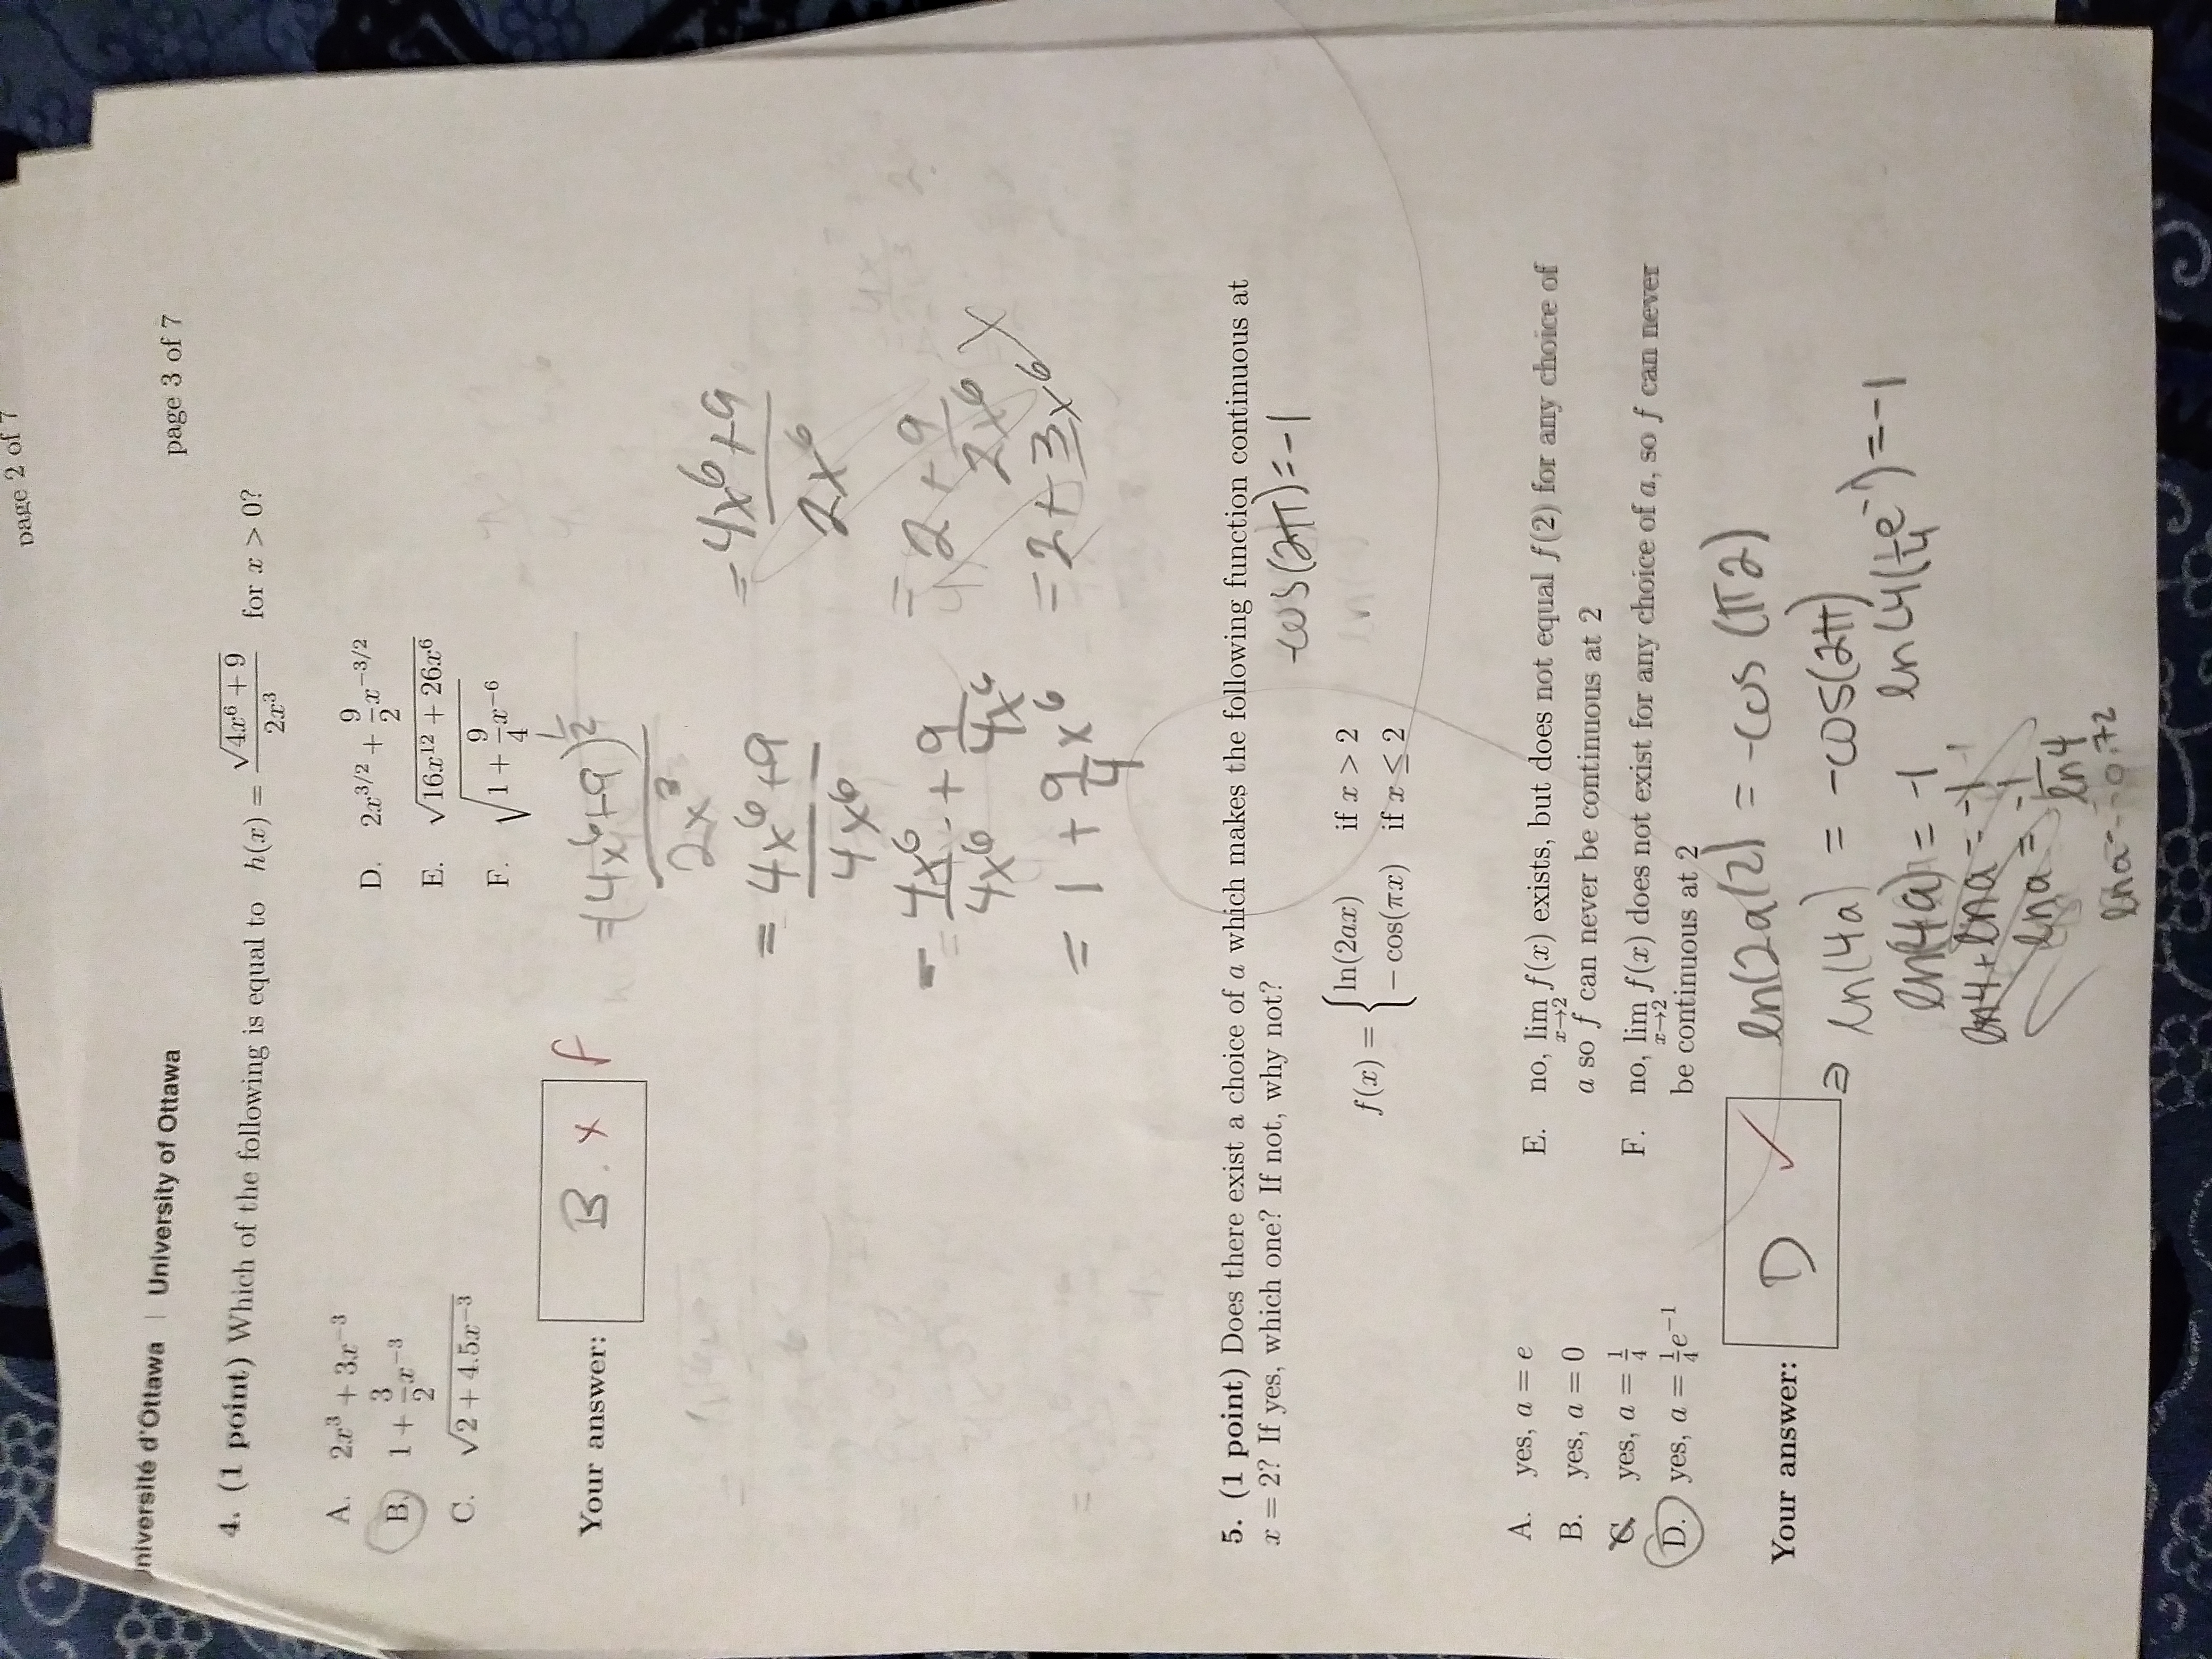 page 2 of 7
Université d'Ottawa | University of Ottawa
page 3 of 7
4. (1 point) Which of the following is equal to h(x) = √(4x⁶ + 9) / 2x³ for x > 0?
A. 2x³ + 3x⁻³
B. 1 + 3/2 x⁻³
C. √(2 + 4.5x⁻³)
D. 2x^(3/2) + 9/2 x^(−3/2)
E. √(16x¹² + 26x⁶)
F. √(1 + 9/4 x⁻⁶)
Your answer: B. x f
= (4x⁶+9)^(1/2) / 2x³
= 4x⁶+9 / 4x⁶
= 4x⁶ / 4x⁶ + 9 / 4x⁶
= 1 + 9/4 x⁶
= 4x⁶+9 / 2x⁶
= 2 + 9 / 2x⁶
= 2 + 3x⁶
5. (1 point) Does there exist a choice of a which makes the following function continuous at
x = 2? If yes, which one? If not, why not?
-cos(2π)=-1
f(x) = { ln(2ax) if x > 2
− cos(πx) if x ≤ 2
A. yes, a = e
B. yes, a = 0
C. yes, a = 1/4
D. yes, a = 1/4 e⁻¹
E. no, lim x→2 f(x) exists, but does not equal f(2) for any choice of
a so f can never be continuous at 2
F. no, lim x→2 f(x) does not exist for any choice of a, so f can never
be continuous at 2
Your answer: D ✓
ln(2a(2)) = -cos(π2)
⇒ ln(4a) = -cos(2π)
ln(4a) = -1
ln(4(1/4 e⁻¹)) = -1
ln4 + lna = -1
lna = -1 / ln4
lna = -0.72